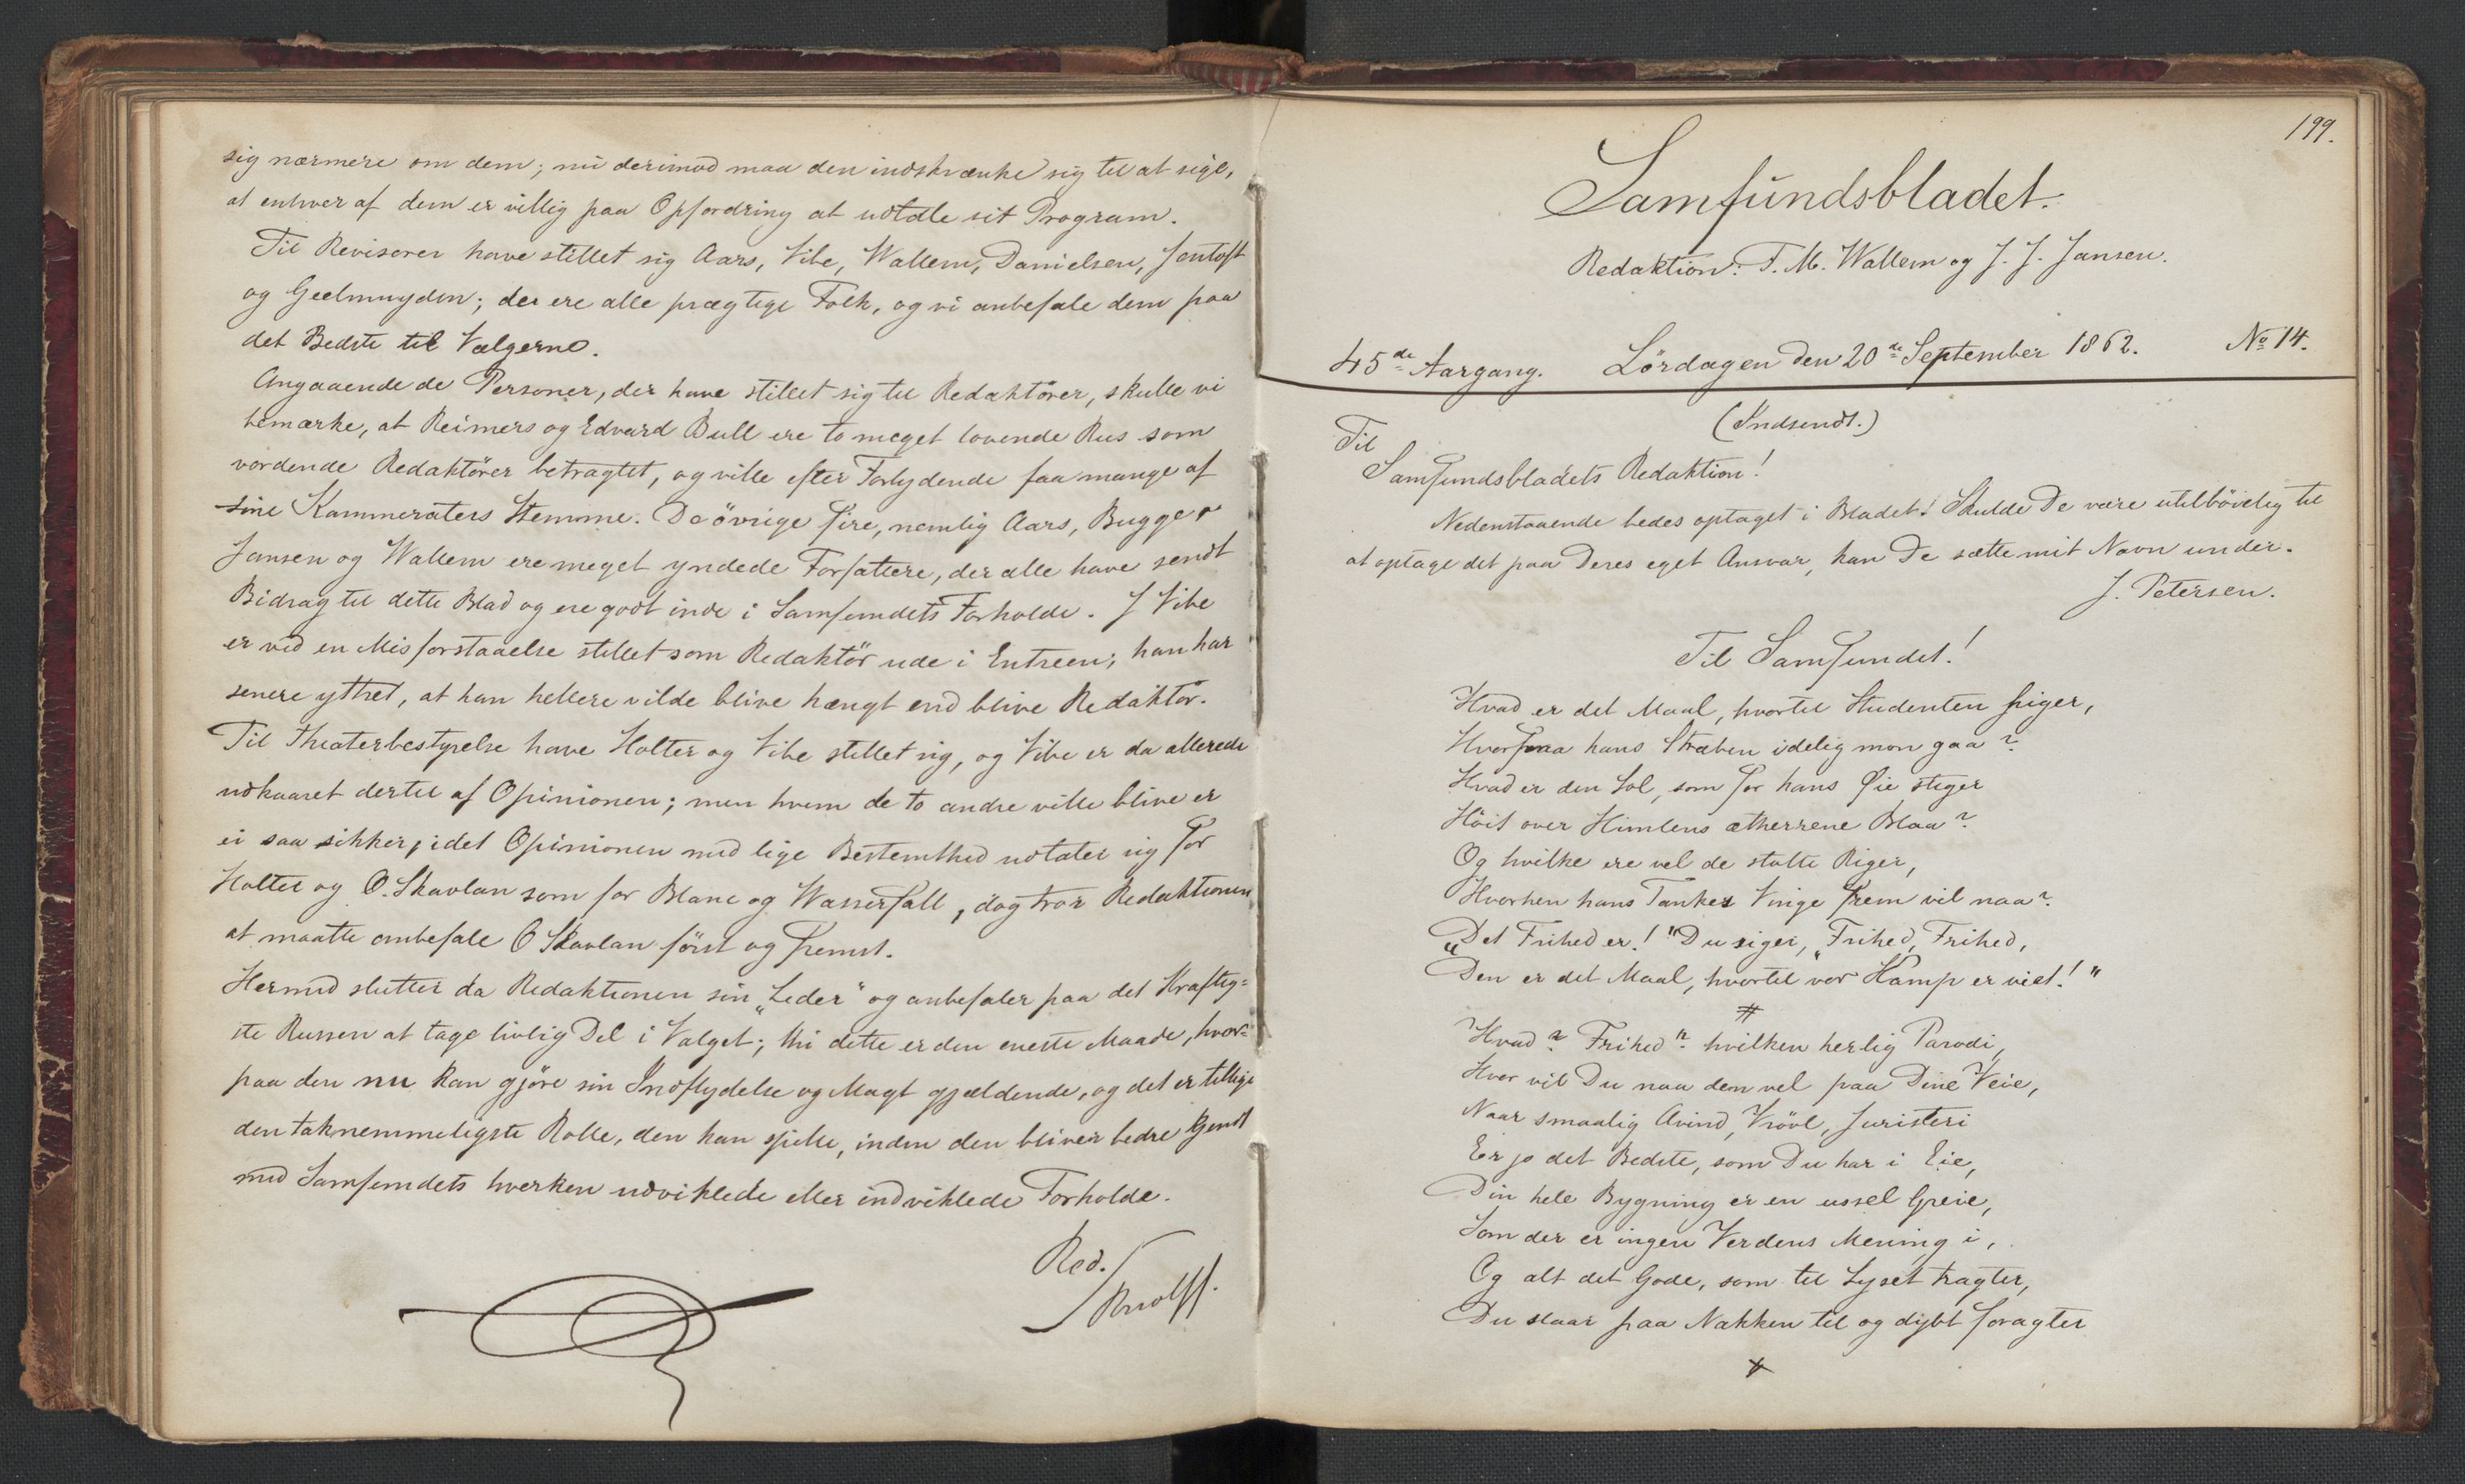 sig nærmere om dem; nu derimod maa den indskrænke sig til at sige,
at enhver af dem er villig paa Opfordring at udtale sit Program.
Til Revisorer have stillet sig Aars, Vibe, Wallem, Danielsen, Jentoft
og Geelmuyden; der ere alle prægtige Folk, og vi anbefale dem paa
det Bedste til Vælgerne.
Angaaende de Personer, der have stillet sig til Redaktörer, skulle vi
bemærke, at Reimers og Edvard Bull ere to meget lovende Rus som
vordende Redaktörer betragtet, og ville efter Forlydende faa mange af
sine Kammeraters Stemme. De övrige fire, nemlig Aars, Bugge,
Jansen og Wallem ere meget yndede Forfattere, der alle have sendt
Bidrag til dette Blad og ere godt inde i Samfundets Forholde. J Vibe
er ved en Misforstaaelse stillet som Redaktör ude i Entreen; han har
senere yttret, at han hellere vilde blive hængt end blive Redaktör.
Til Theaterbestyrelse have Holter og Vibe stillet sig, og Vibe er da allerede
udkaaret dertil af Opinionen; men hvem de to andre ville blive er
ei saa sikker, idet Opinionen med lige Bestemthed udtaler sig for
Holter og O. Skavlan som for Blanc og Wasserfall, dog tror Redaktionen
at maatte anbefale O Skavlan först og fremst.
Hermed slutter da Redaktionen sin „Leder" og anbefaler paa det Kraftig=
ste Russen at tage livlig Del i Valget; thi dette er den eneste Maade, hvor=
paa den nu kan gjöre sin Indflydelse og Magt gjældende, og det er tillige
den taknemmeligste Rolle, den kan spille, inden den bliver bedre kjendt
med Samfundets hverken udviklede eller indviklede Forholde.
Red.
Knolff.
199.
Samfundsbladet.
Redaktion: F. M. Wallem og J. J. Jansen.
45de Aargang. Lördagen den 20de September 1862. No 14.
(Indsendt.)
Til
Samfundsbladets Redaktion!
Nedenstaaende bedes optaget i Bladet! Skulde De være utilböielig til
at optage det paa Deres eget Ansvar, kan De sætte mit Navn under.
J. Petersen.
Til Samfundet!
Hvad er det Maal, hvortil Studenten higer,
Hvorpaa hans Stræben idelig mon gaa?
Hvad er den Sol, som for hans Øie stiger
Höit over Himlens ætherrene Blaa?
Og hvilke ere vel de stolte Riger,
Hvorhen hans Tankes Vinge frem vil naa?
„Det Frihed er!" Du siger, „Frihed, Frihed,
Den er det Maal, hvortil vor Kamp er viet!"
#
Hvad? Frihed"? hvilken herlig Parodi,
Hvor vil Du naa dem vel paa Dine Veie,
Naar smaalig Avind, Vrövl, Juristeri
Er jo det Bedste, som Du har i Eie,
Din hele Bygning er en ussel Greie,
Som der er ingen Verdens Mening i,
Og alt det Gode, som til Lyset tragter,
Du slaar paa Nakken til og dybt foragter